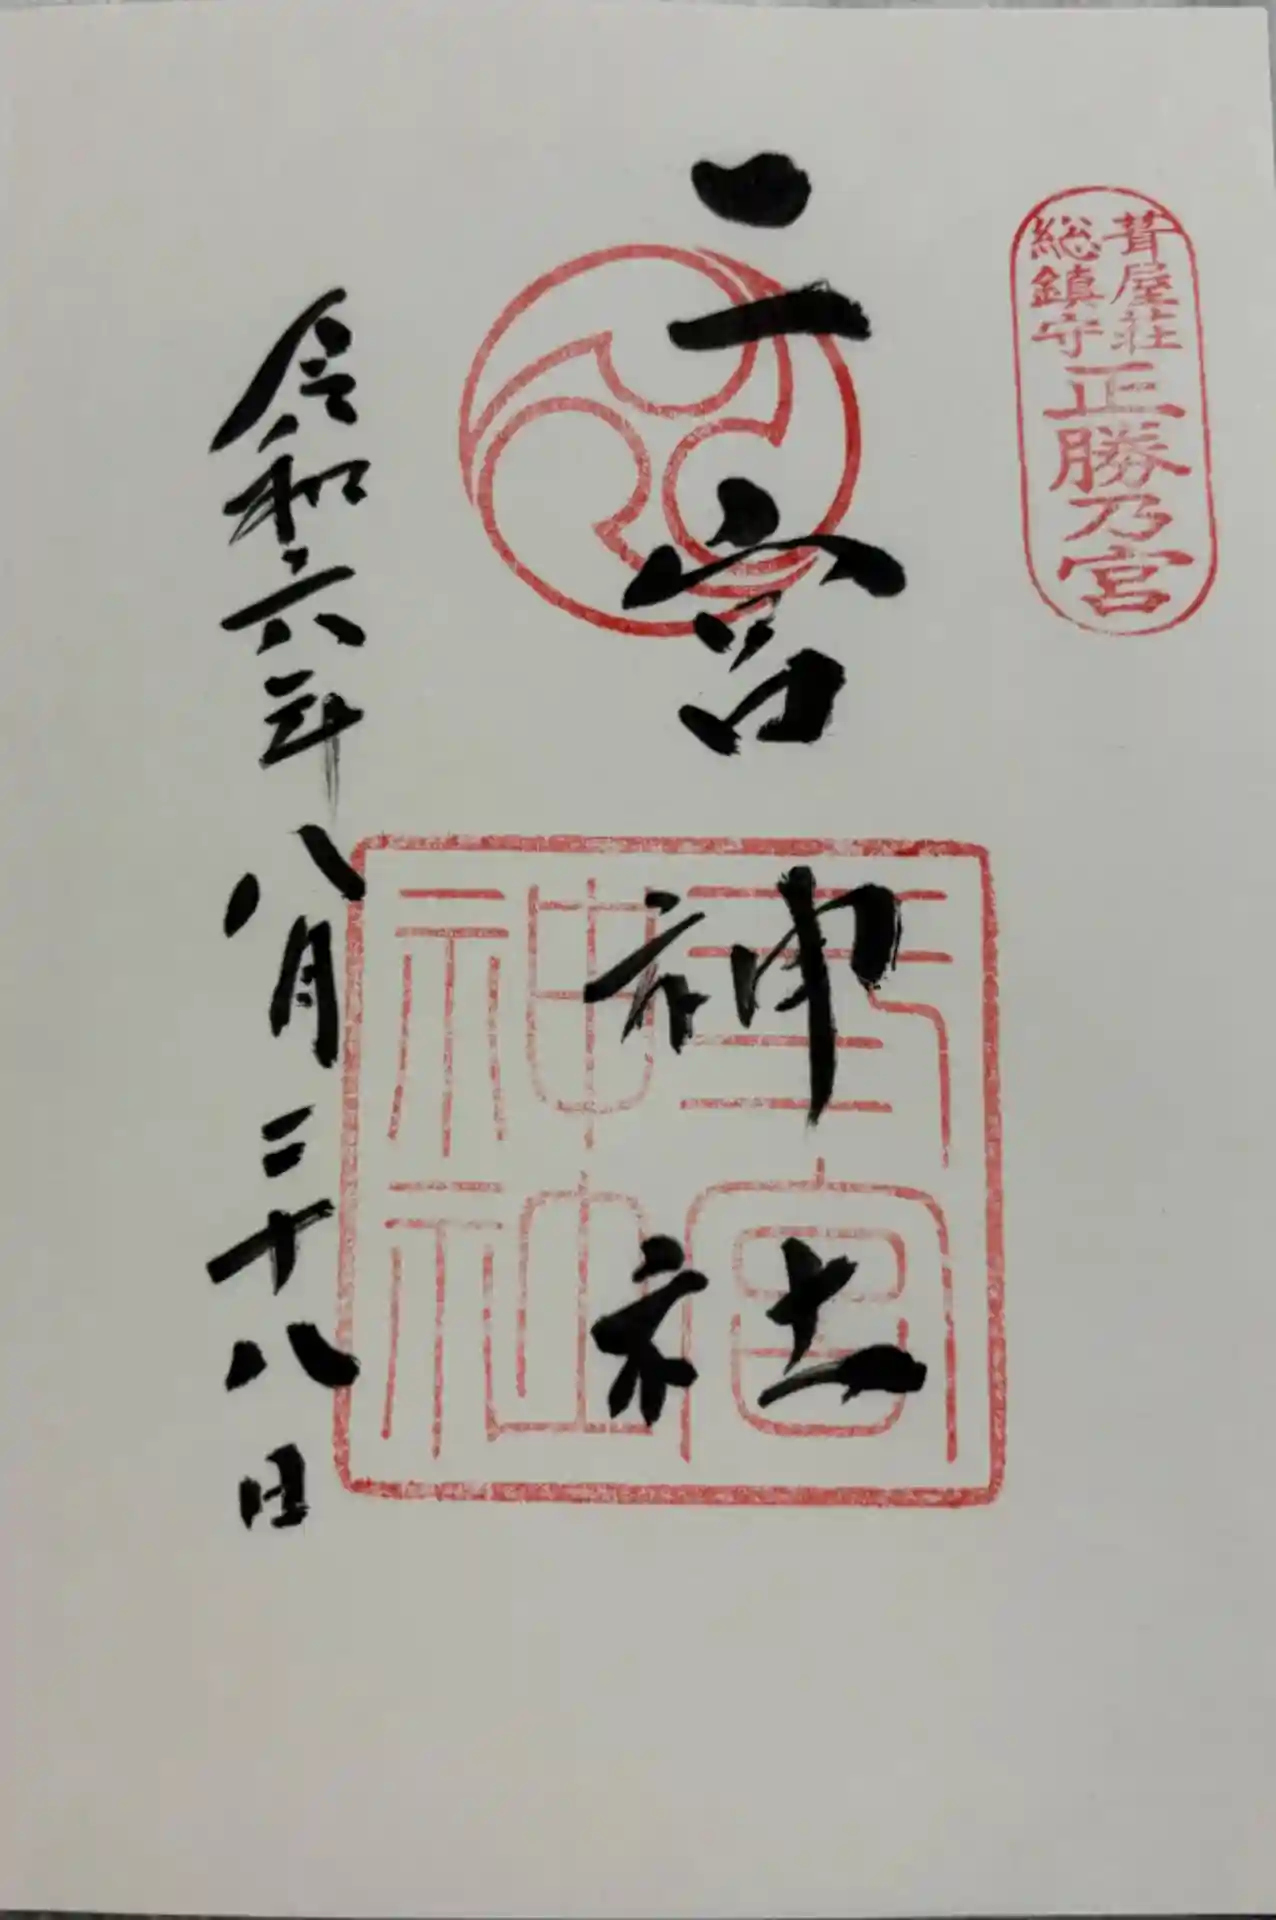 葺屋荘
総鎮守
正勝乃宮
二宮神社
令和六年八月二十八日